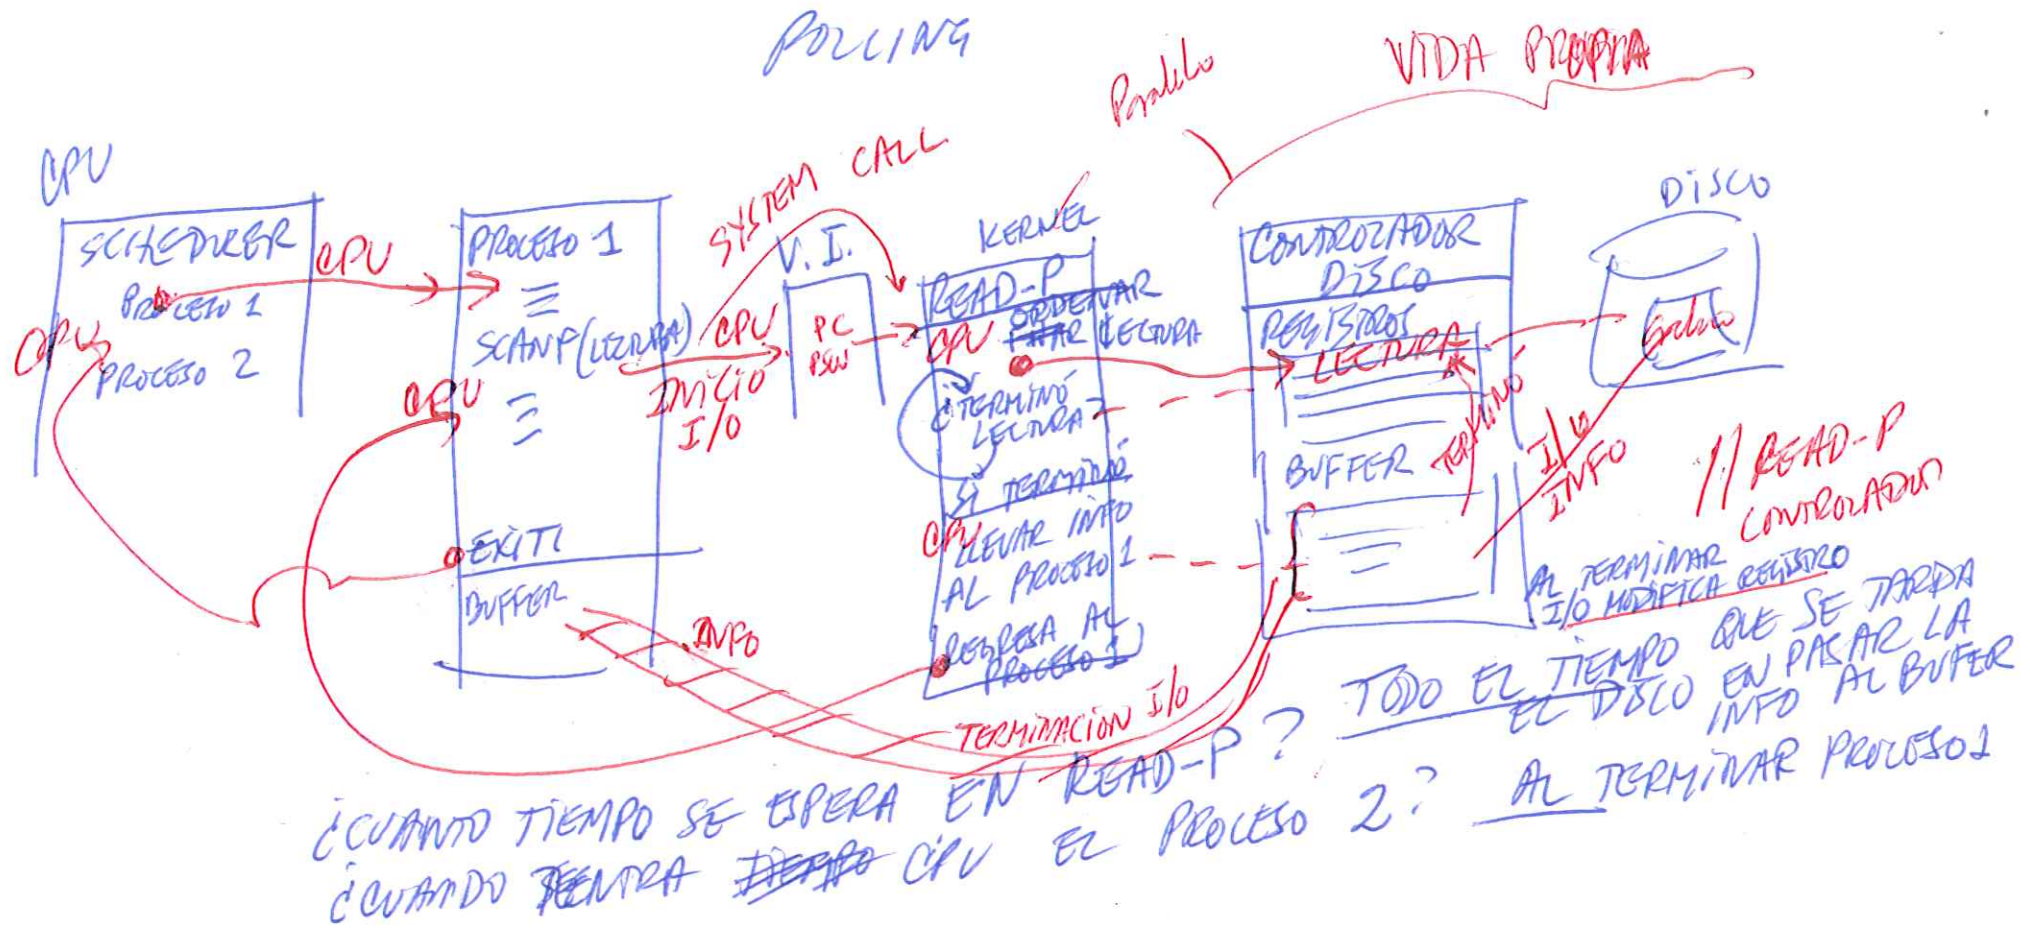 POLLING
VIDA PROPIA
Paralelo
CPU
SCHEDULER
PROCESO 1
PROCESO 2
CPU
CPU
PROCESO 1
SCANF (LECTURA)
CPU
EXIT
BUFFER
SYSTEM CALL
CPU
INICIO
I/O
V. I.
PC
PSW
KERNEL
READ-P
CPU
ORDENAR
LECTURA
¿TERMINÓ
LECTURA?
SI TERMINÓ
CPU
LLEVAR INFO
AL PROCESO 1
REGRESA AL
PROCESO 1
INFO
TERMINACION I/O
CONTROLADOR
DISCO
REGISTROS
LECTURA
BUFFER
TERMINÓ
I/O
INFO
DISCO
// READ-P
CONTROLADOR
AL TERMINAR
I/O MODIFICA REGISTRO
¿CUANTO TIEMPO SE ESPERA EN READ-P? TODO EL TIEMPO QUE SE TARDA
EL DISCO EN PASAR LA
INFO AL BUFER
¿CUANDO ENTRA CPU EL PROCESO 2? AL TERMINAR PROCESO 1